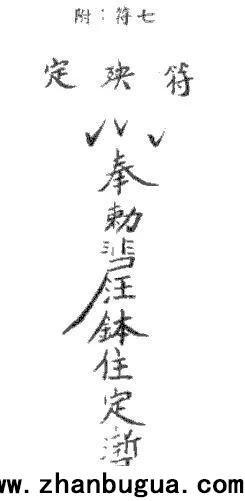 附：符七
定殃符
奉勅汪鉢住定
ww.zhanbugua.com